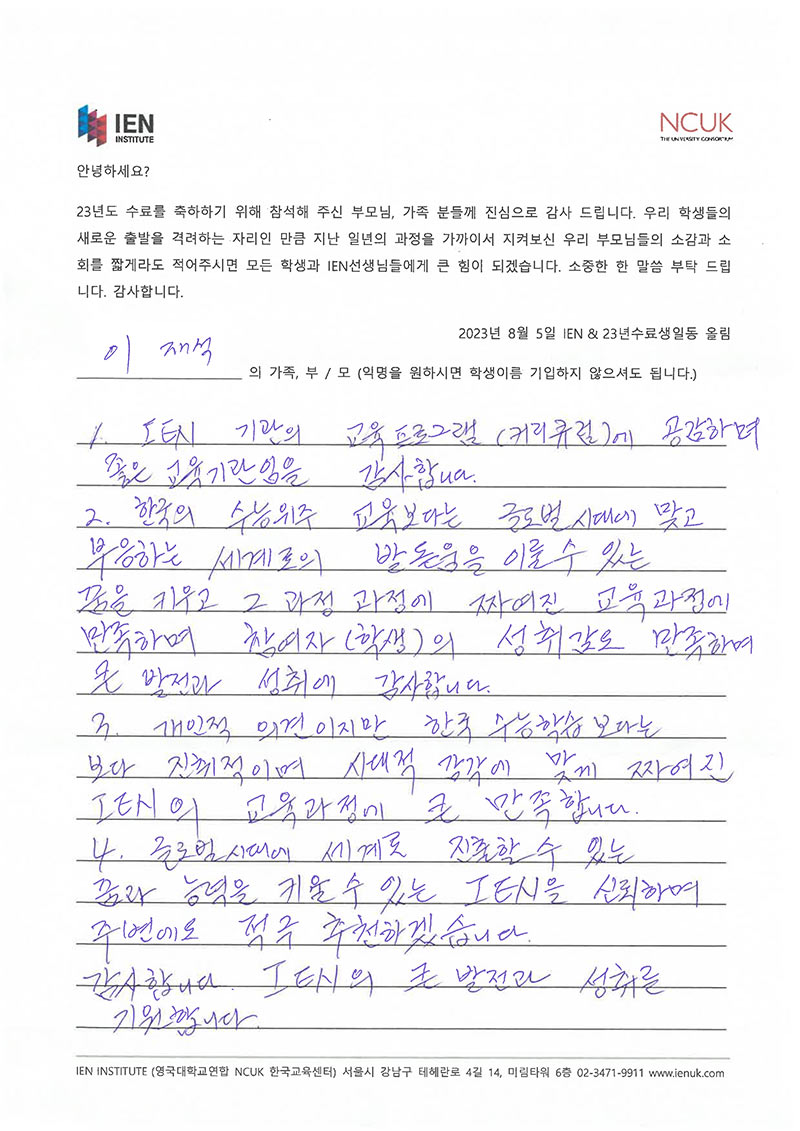 IEN
INSTITUTE
NCUK
THE UNIVERSITY CONSORTIUM
안녕하세요?
23년도 수료를 축하하기 위해 참석해 주신 부모님, 가족 분들께 진심으로 감사 드립니다. 우리 학생들의
새로운 출발을 격려하는 자리인 만큼 지난 일년의 과정을 가까이서 지켜보신 우리 부모님들의 소감과 소
회를 짧게라도 적어주시면 모든 학생과 IEN선생님들에게 큰 힘이 되겠습니다. 소중한 한 말씀 부탁 드립
니다. 감사합니다.
2023년 8월 5일 IEN & 23년수료생일동 올림
이 재석
의 가족, 부 / 모 (익명을 원하시면 학생이름 기입하지 않으셔도 됩니다.)
1. IEN 기관의 교육프로그램 (커리큐럼)에 공감하며
좋은 교육기관임을 감사합니다.
2. 한국의 수능위주 교육보다는 글로벌시대에 맞고
부응하는 세계로의 발돋움을 이룰 수 있는
꿈을 키우고 그 과정 과정에 짜여진 교육과정에
만족하며 참여자(학생)의 성취감도 만족하며
큰 발전과 성취에 감사합니다.
3. 개인적 의견이지만 한국 수능학습보다는
보다 진취적이며 시대적 감각에 맞게 짜여진
IEN의 교육과정에 큰 만족합니다.
4. 글로벌시대에 세계로 진출할 수 있는
꿈과 능력을 키울 수 있는 IEN을 신뢰하며
주변에도 적극 추천하겠습니다.
감사합니다. IEN의 큰 발전과 성취를
기원합니다.
IEN INSTITUTE (영국대학교연합 NCUK 한국교육센터) 서울시 강남구 테헤란로 4길 14, 미림타워 6층 02-3471-9911 www.ienuk.com